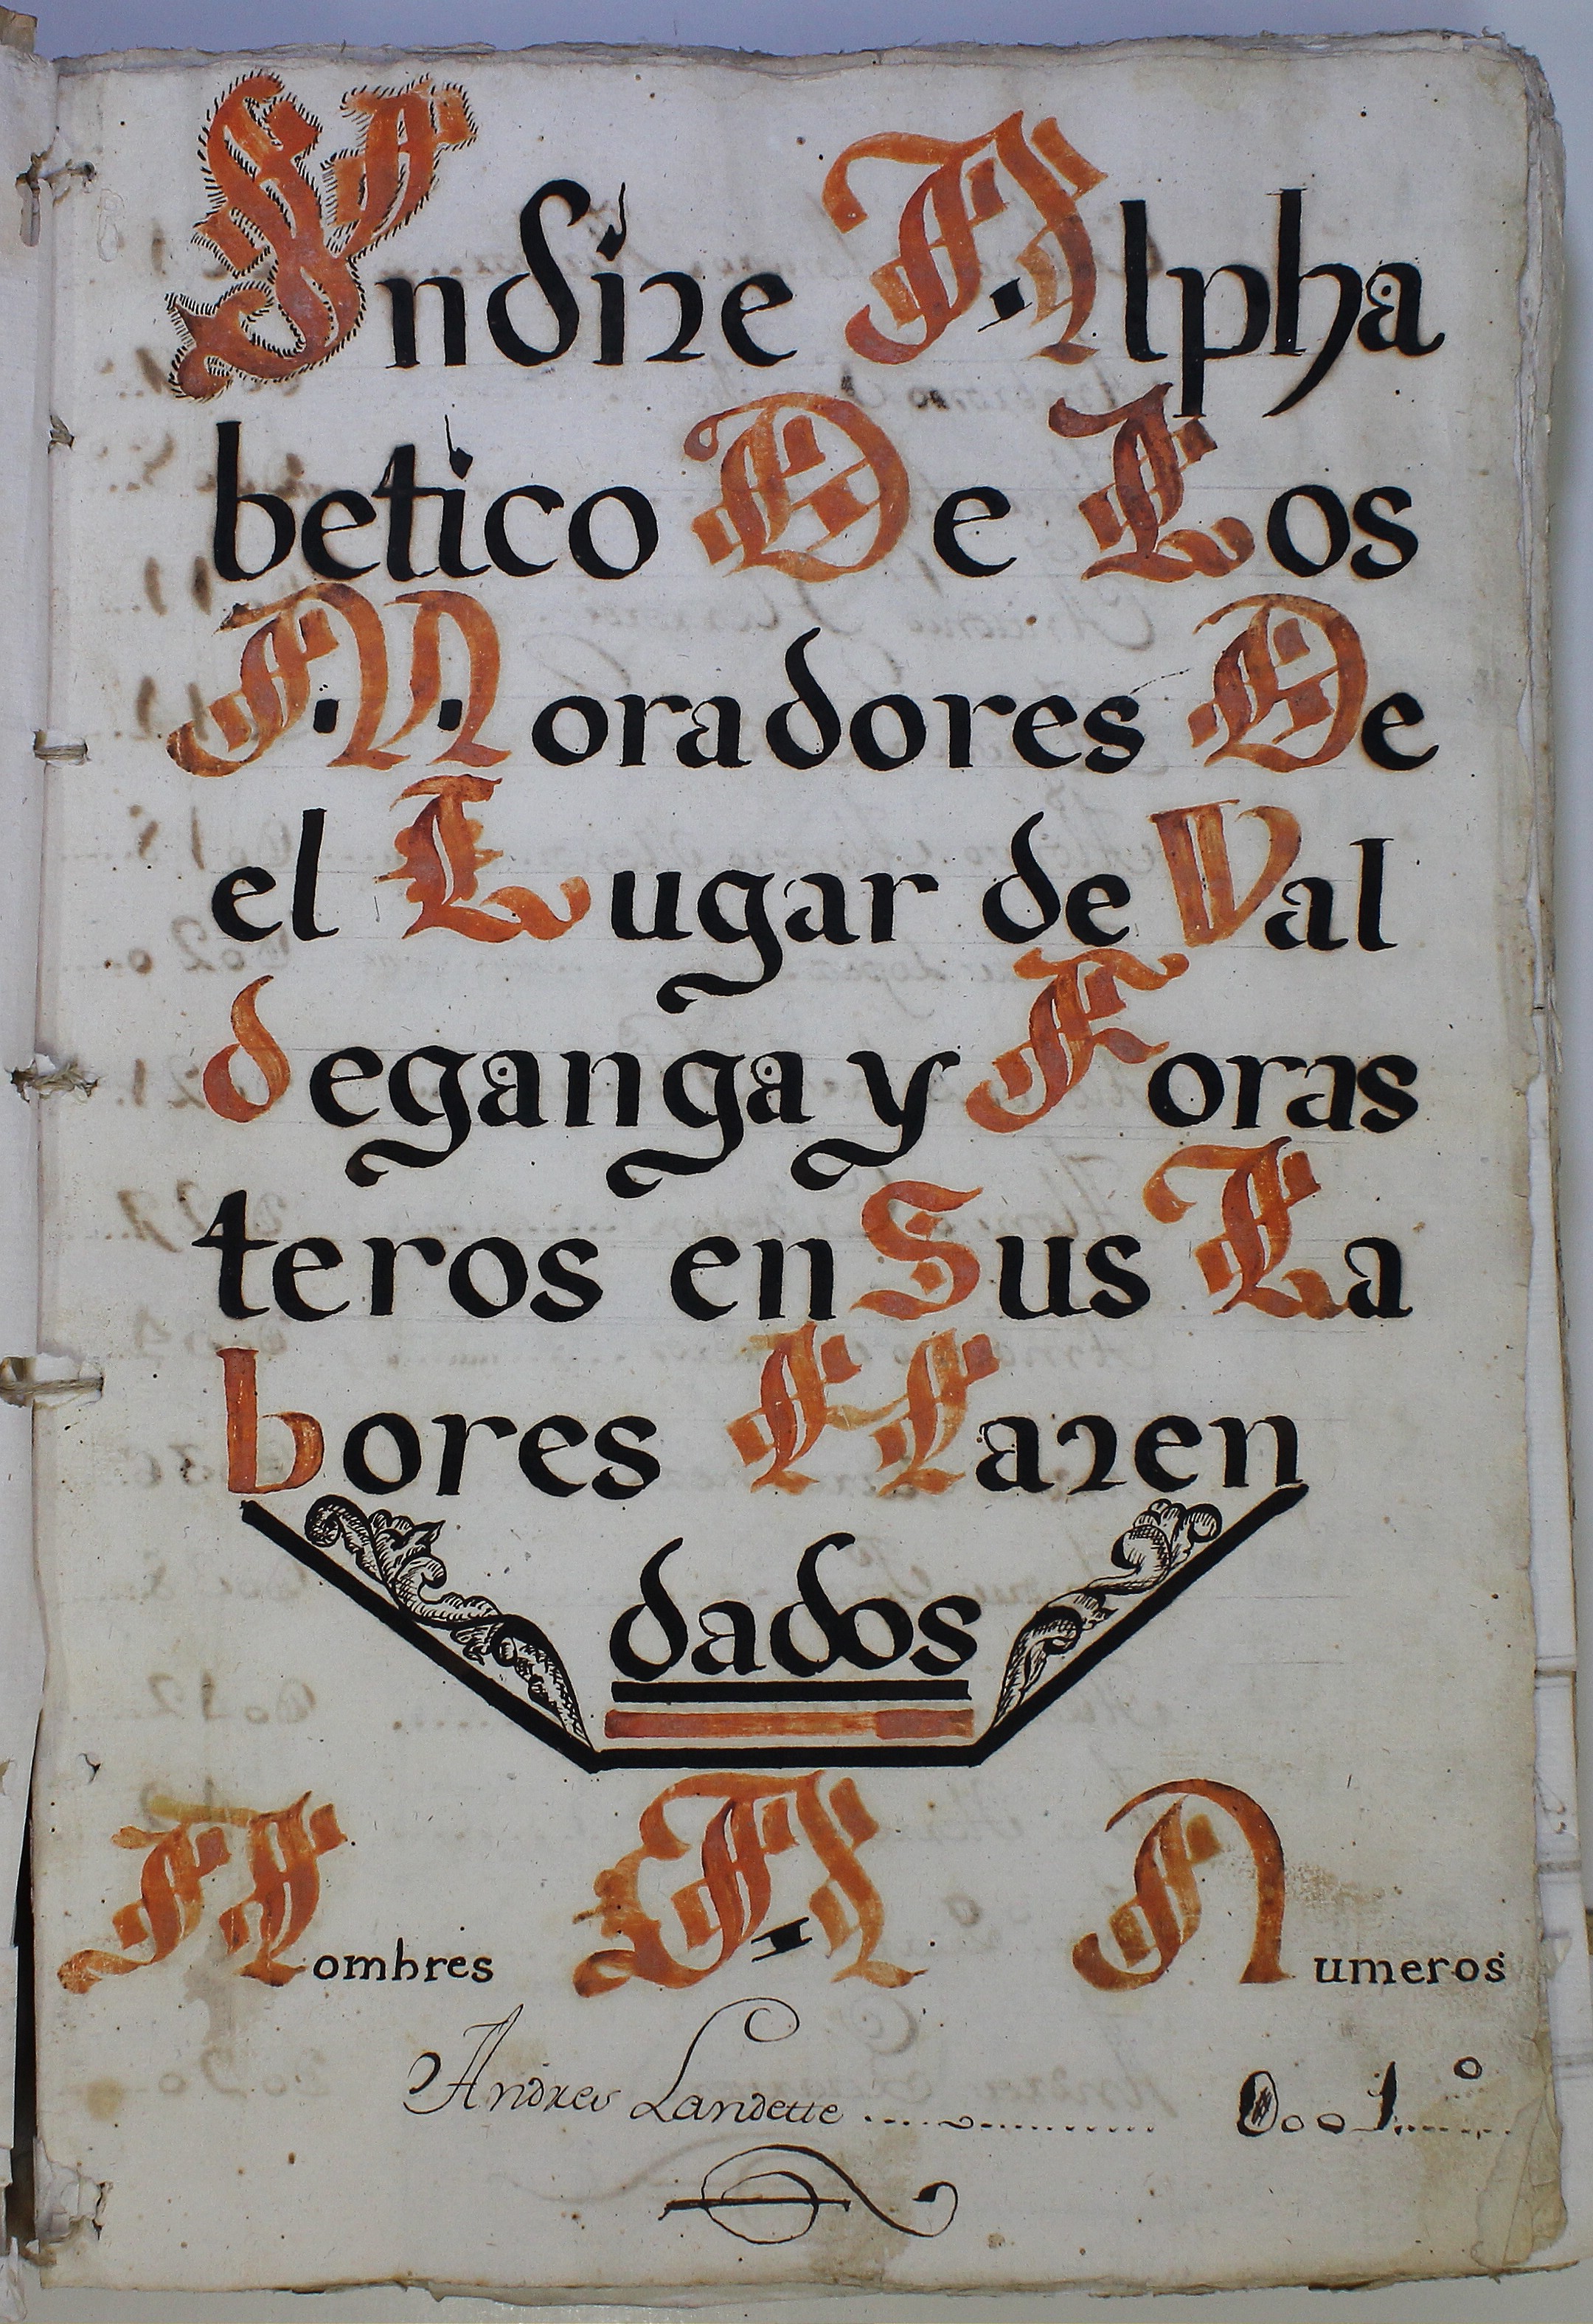 Indize Alpha
betico De Los
Moradores De
el Lugar de Val
deganga y Foras
teros en Sus La
bores Hazen
dados
Nombres A Numeros
Andres Landette 0001